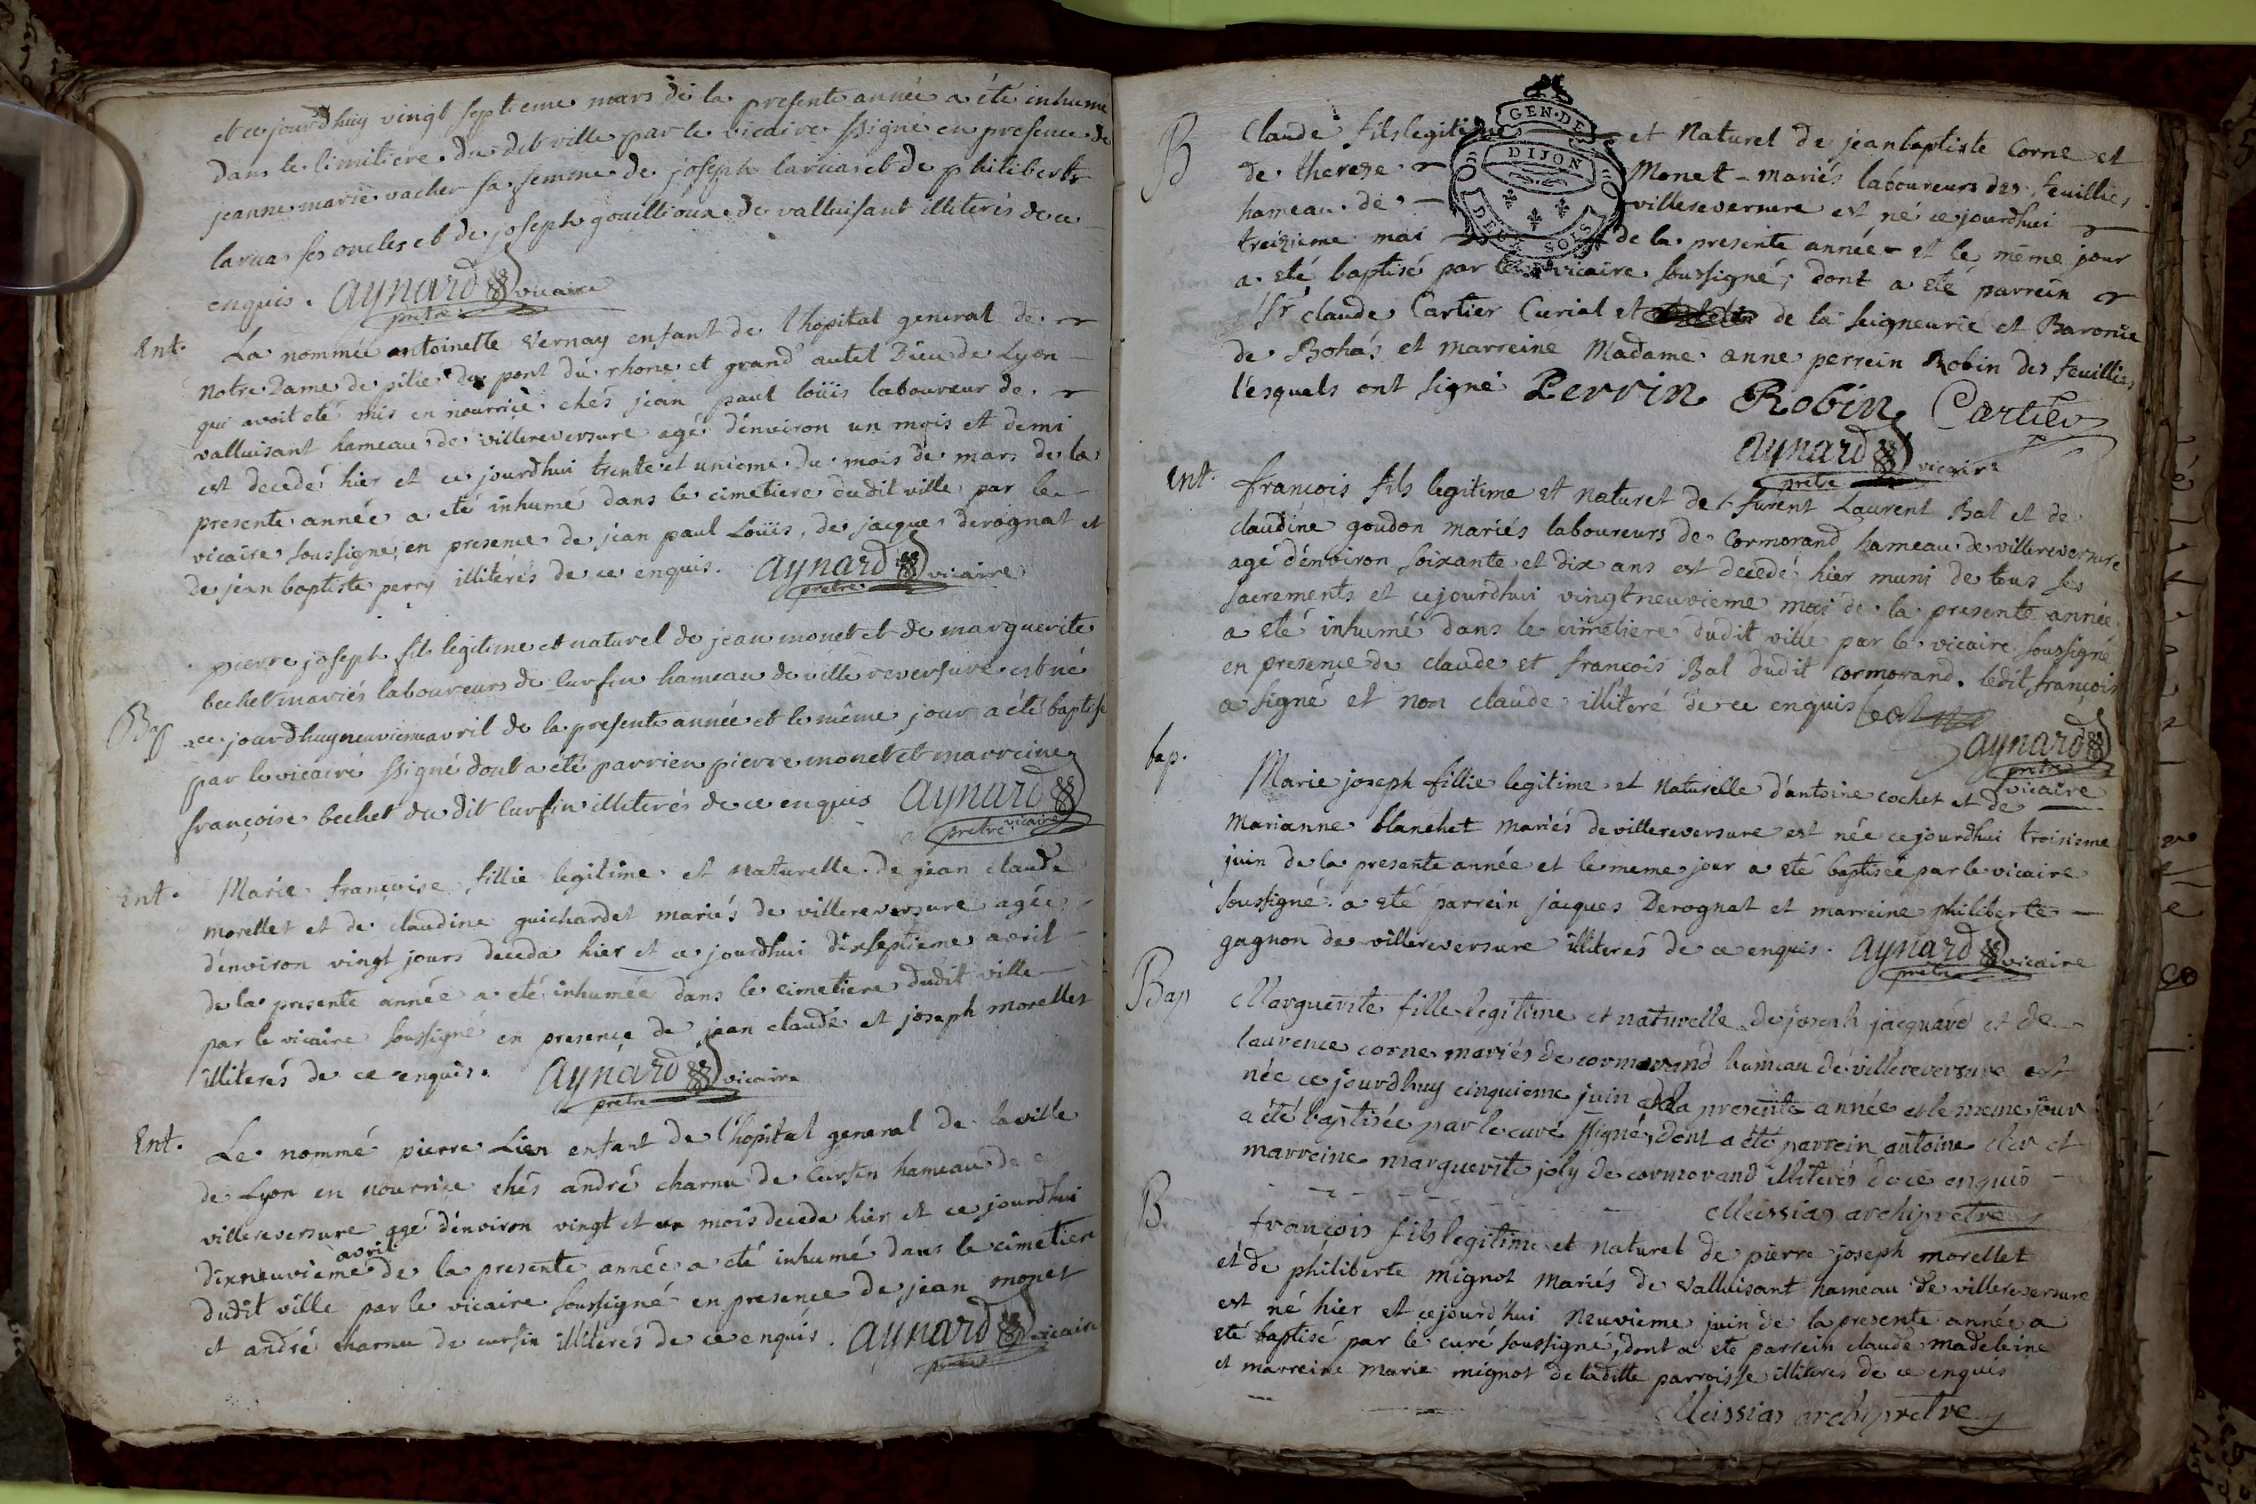 et ce jourdhuy vingt septieme mars de la presente année a été inhumé
dans le cimitiere du dit ville par le vicaire ssigné en presence de
jeanne marie vacher sa femme de joseph larua et de philiberte
larua ses oncles et de joseph gouillioux de valluisant illiterés de ce
enquis. aynard vicaire
pretre
Ent. La nommée antoinette Vernay enfant de l'hopital general de
notre Dame de pitié du pont du rhone et grand autel Dieu de Lyon
qui avoit eté mis en nourrice chés jean paul loüis laboureur de
valluisant hameau de villereversure agé d'environ un mois et demi
est decedé hier et ce jourdhui trente et unieme du mois de mars de la
presente année a eté inhumé dans le cimetiere dudit ville par le
vicaire soussigné, en presence de jean paul Loüis, de jacque derognat et
de jean baptiste perry illiterés de ce enquis. aynard vicaire
pretre
pierre joseph fils legitime et naturel de jean monet et de marguerite
bechet mariés laboureurs de Curfin hameau de ville reversure est né
Bap ce jourdhuy neuvieme avril de la presente année et le même jour a été baptisé
par le vicaire ssigné dont a été parrien pierre monet et marreine
françoise bechet du dit Curfin illiterés de ce enquis aynard
pretre vicaire
Ent. Marie françoise fillie legitime et naturelle de jean claude
morellet et de claudine guichardet mariés de villereversure agée
d'environ vingt jours deceda hier et ce jourdhui dixseptieme avril
de la presente année a eté inhumée dans le cimetiere dudit ville
par le vicaire soussigné en presence de jean claude et joseph morellet
illiterés de ce enquis. aynard vicaire
pretre
Ent. Le nommé pierre Lien enfant de l'hopital general de la ville
de Lyon en nourrice chés andré charnu de Cursin hameau de
villereversure agé d'environ vingt et un mois deceda hier et ce jourdhui
avril
dixneuvième de la presente année a eté inhumé dans le cimetiere
dudit ville par le vicaire soussigné en presence de jean monet
et andré charnu de cursin illiterés de ce enquis. aynard vicaire
pretre
GEN. DE
DIJON
DEUX SOLS
B Claude fils legitime et naturel de jean baptiste Corne et
de therese Monet mariés laboureurs des feuillies
hameau de villereversure est né ce jourdhui
treizieme mai de la presente année et le même jour
a eté baptisé par le vicaire soussigné; dont a eté parrein
Sr claude Cartier Curial et de la seigneurie et Baronie
de Bohas et marreine Madame anne perrein Robin des feuillies
lesquels ont signé Perrin Robin Cartier
aynard vicaire
pretre
Ent. francois fils legitime et naturel de furent Laurent Bal et de
claudine goudon mariés laboureurs de Cormorand hameau de villereversure
agé d'environ soixante et dix ans est decedé hier muni de tous ses
sacrements et cejourdhui vingtneuvieme mai de la presente année
a eté inhumé dans le cimetiere dudit ville par le vicaire soussigné
en presence de claude et francois Bal dudit cormorand. ledit francois
a signé et non claude illiteré de ce enquis
aynard
pretre
vicaire
bap. Marie joseph fillie legitime et naturelle d'antoine cochet et de
Marianne blanchet mariés de villereversure est née cejourdhui troisieme
juin de la presente année et le meme jour a eté baptiseé par le vicaire
soussigné. a eté parrein jacques Derognat et marreine philiberte
gagnon de villereversure illiterés de ce enquis. aynard vicaire
pretre
Bap Marguerite fille legitime et naturelle de joseph jacquard et de
laurence corne mariés de cormorand hameau de villereversure est
née ce jourdhuy cinquieme juin de la presente année et le meme jour
a été baptisée par le curé ssigné, dont a été parrein antoine cler et
marreine marguerite joly de cormorand illiterés de ce enquis
Meissias archipretre
B. françois fils legitime et naturel de pierre joseph morellet
et de philiberte mignot mariés de valluisant hameau de villereversure
est né hier et cejourd'hui neuvieme juin de la presente année a
eté baptisé par le curé soussigné, dont a eté parrein claude madeleine
et marreine marie mignot de laditte parroisse illiteres de ce enquis
Meissias archipretre